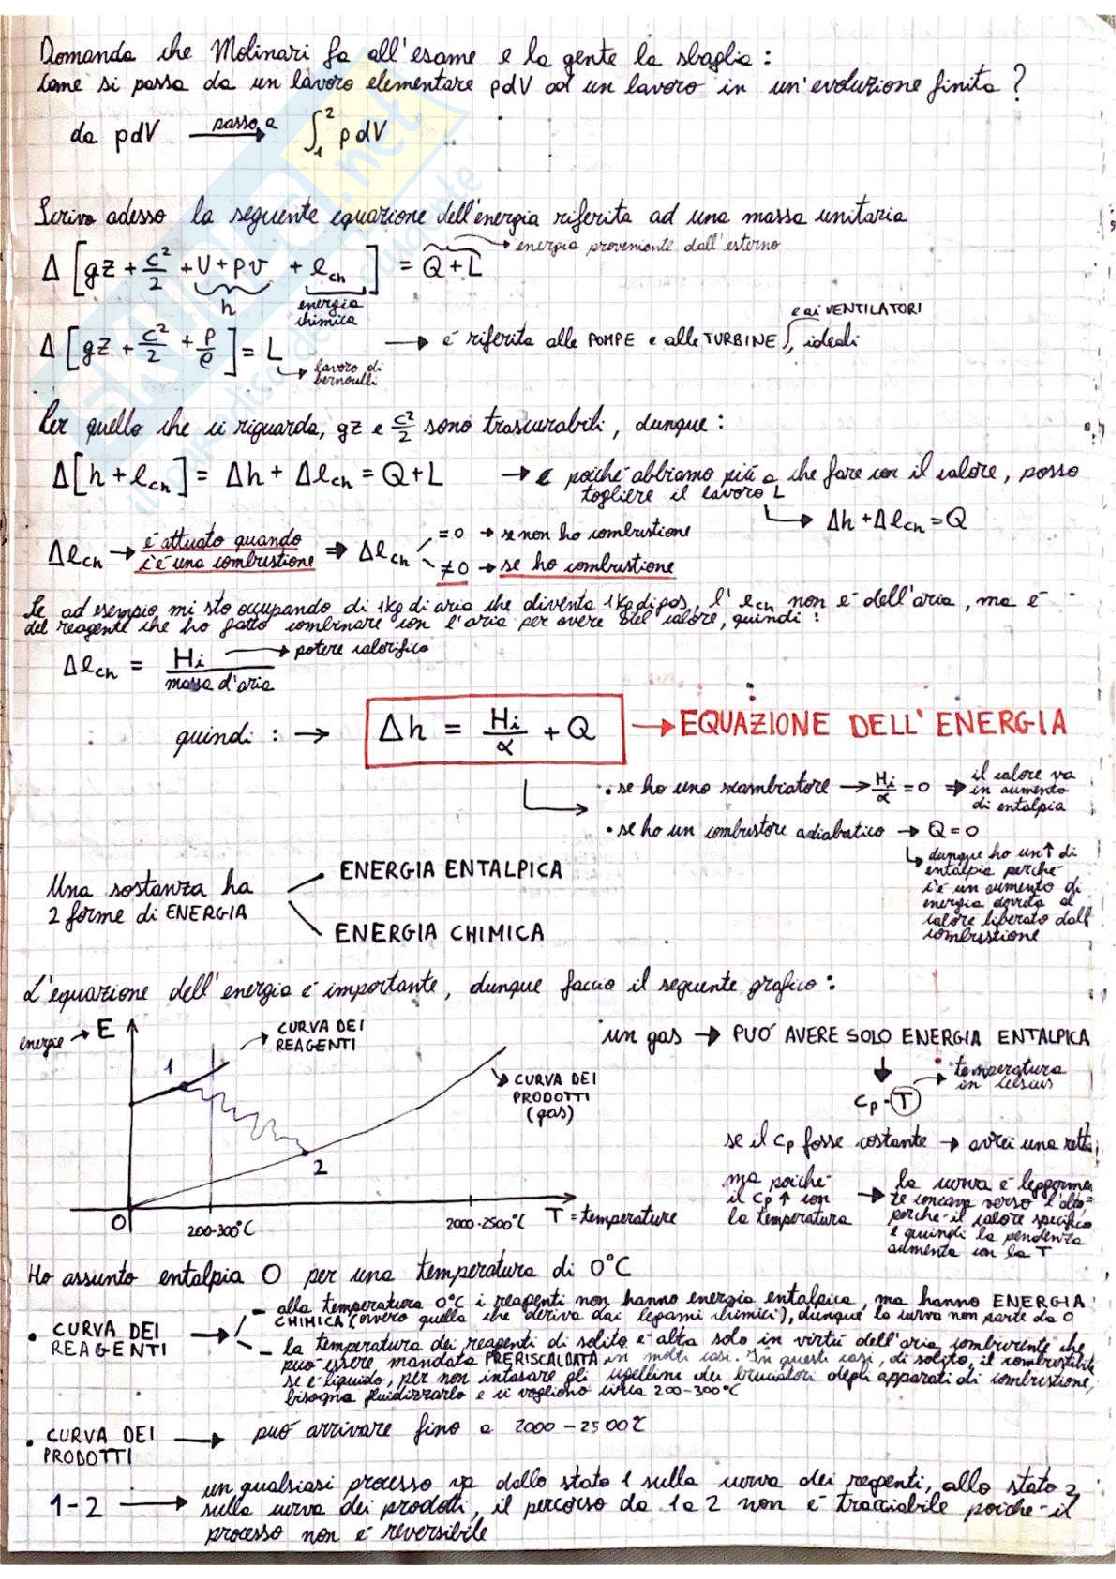 Domanda che Molinari fa all'esame e la gente la sbaglia:
Come si passa da un lavoro elementare pdV ad un lavoro in un'evoluzione finita?
da pdV passo a ∫₁² pdV
Scrivo adesso la seguente equazione dell'energia riferita ad una massa unitaria
Δ [gz + c²/2 + U + pv + ech] = Q + L energia proveniente dall'esterno
h energia chimica
e ai VENTILATORI
Δ [gz + c²/2 + p/ρ] = L → é riferita alle POMPE e alle TURBINE, ideali
lavoro di bernoulli
Per quello che ci riguarda, gz e c²/2 sono trascurabili, dunque:
Δ[h + ech] = Δh + Δech = Q + L → e poiché abbiamo più a che fare con il calore, posso
togliere il lavoro L
→ Δh + Δech = Q
Δech → é attuato quando c'é una combustione ⇒ Δech = 0 → se non ho combustione
≠ 0 → se ho combustione
Se ad esempio mi sto occupando di 1kg di aria che diventa 1kg di gas, l' ech non é dell'aria, ma é
del reagente che ho fatto combinare con l'aria per avere del calore, quindi:
Δech = Hi / massa d'aria → potere calorifico
quindi: → Δh = Hi/α + Q → EQUAZIONE DELL'ENERGIA
• se ho uno scambiatore → Hi/α = 0 ⇒ il calore va
in aumento
di entalpia
• se ho un combustore adiabatico → Q = 0
dunque ho un ↑ di
entalpia perché
c'é un aumento di
energia dovuta al
calore liberato dalla
combustione
Una sostanza ha
2 forme di ENERGIA
ENERGIA ENTALPICA
ENERGIA CHIMICA
L'equazione dell'energia é importante, dunque faccio il seguente grafico:
energie → E
CURVA DEI
REAGENTI
1
CURVA DEI
PRODOTTI
(gas)
2
O
200-300°C
2000-2500°C
T = temperature
un gas → PUÓ AVERE SOLO ENERGIA ENTALPICA
cp · T → temperatura
in celsius
se il cp fosse costante → avrei una retta;
ma poiché
il cp ↑ con
la temperatura
→ la curva é leggermen
te concava verso l'alto,
perché il calore specifico
e quindi la pendenza
aumenta con la T
Ho assunto entalpia 0 per una temperatura di 0°C
• CURVA DEI
REAGENTI
- alla temperatura 0°C i reagenti non hanno energia entalpica, ma hanno ENERGIA
CHIMICA (ovvero quella che deriva dai legami chimici), dunque la curva non parte da 0
- la temperatura dei reagenti di solito é alta solo in virtù dell'aria comburente che
può essere mandata PRERISCALDATA in molti casi. In questi casi, di solito, il combustibile
se é liquido, per non intasare gli ugellini dei bruciatori degli apparati di combustione,
bisogna fluidizzarlo e ci vogliono circa 200-300°C
• CURVA DEI
PRODOTTI
→ può arrivare fino a 2000-2500°C
1-2 → un qualsiasi processo va dallo stato 1 sulla curva dei reagenti, allo stato 2
sulla curva dei prodotti, il percorso da 1 a 2 non é tracciabile poiché il
processo non é reversibile